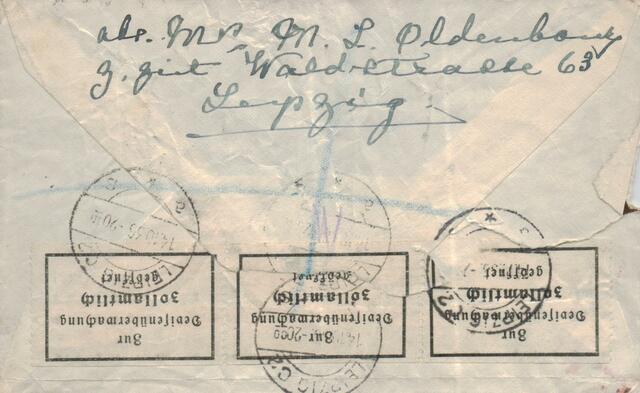 abs. Mr. M. L. Oldenbourg
z. Zeit Waldstrasse 63
Leipzig.
Zur
Devisenüberwachung
zollamtlich
geöffnet
Zur
Devisenüberwachung
zollamtlich
geöffnet
Zur
Devisenüberwachung
zollamtlich
geöffnet
LEIPZIG C2
LEIPZIG C2
LEIPZIG